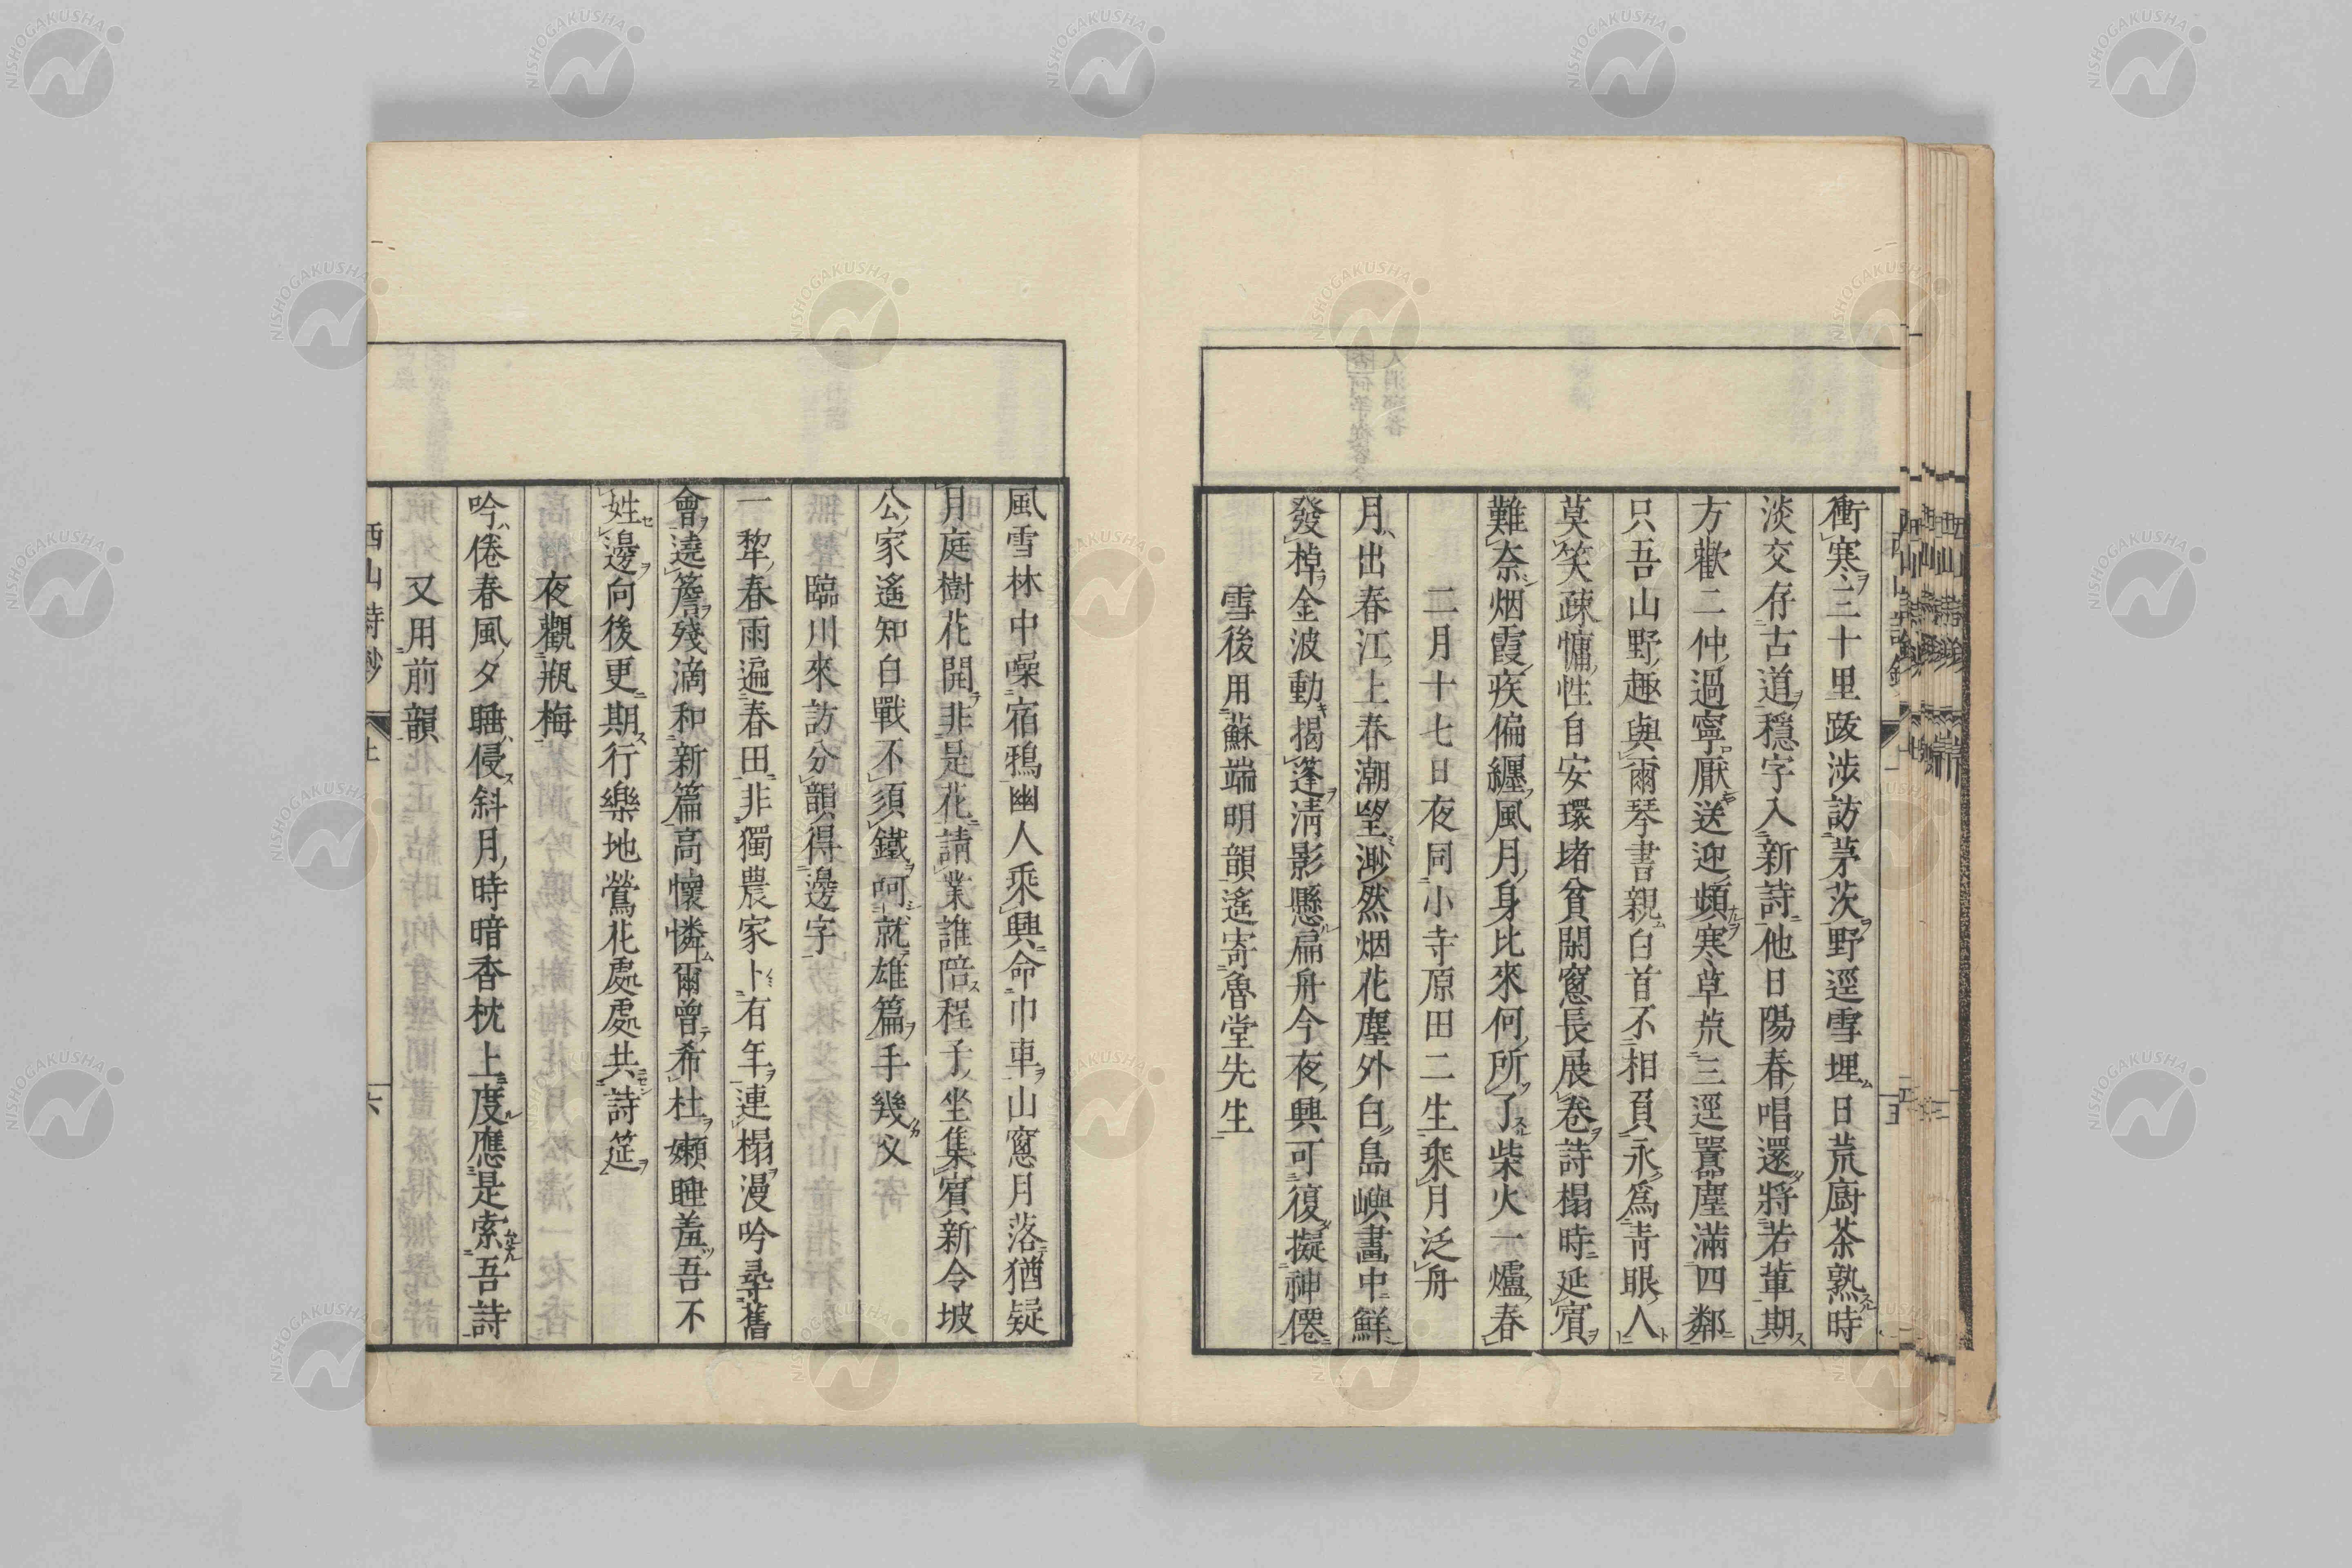 衝寒三十里跋渉訪茅茨野逕雪埋日荒廚茶熟時
淡交存古道穩字入新詩他日陽春唱還將若輩期
方歡二仲過寧厭送迎頻寒草荒三逕囂塵滿四鄰
只吾山野趣與爾琴書親白首不相負永爲青眼人
莫笑疎慵性自安環堵貧開窻長展卷詩榻時延賓
難奈烟霞疾偏纒風月身比來何所了柴火一爐春
二月十七日夜同小寺原田二生乘月泛舟
月出春江上春潮望渺然烟花塵外白島嶼畫中鮮
發棹金波動揭蓬淸影懸扁舟今夜興可復擬神僊
雪後用蘇端明韻遙寄魯堂先生
風雪林中噪宿鴉幽人乘興命巾車山窻月落猶疑
月庭樹花開非是花請業誰陪程子坐集賓新令坡
公家遙知白戰不須鐵呵就雄篇手幾叉
臨川來訪分韻得邊字
一犂春雨遍春田非獨農家卜有年連榻漫吟尋舊
會遶簷殘滴和新篇高懷憐爾曾希杜嬾睡羞吾不
姓邊向後更期行樂地鶯花處處共詩筵
夜觀瓶梅
吟倦春風夕睡侵斜月時暗香枕上度應是索吾詩
又用前韻
西山詩鈔 上 六